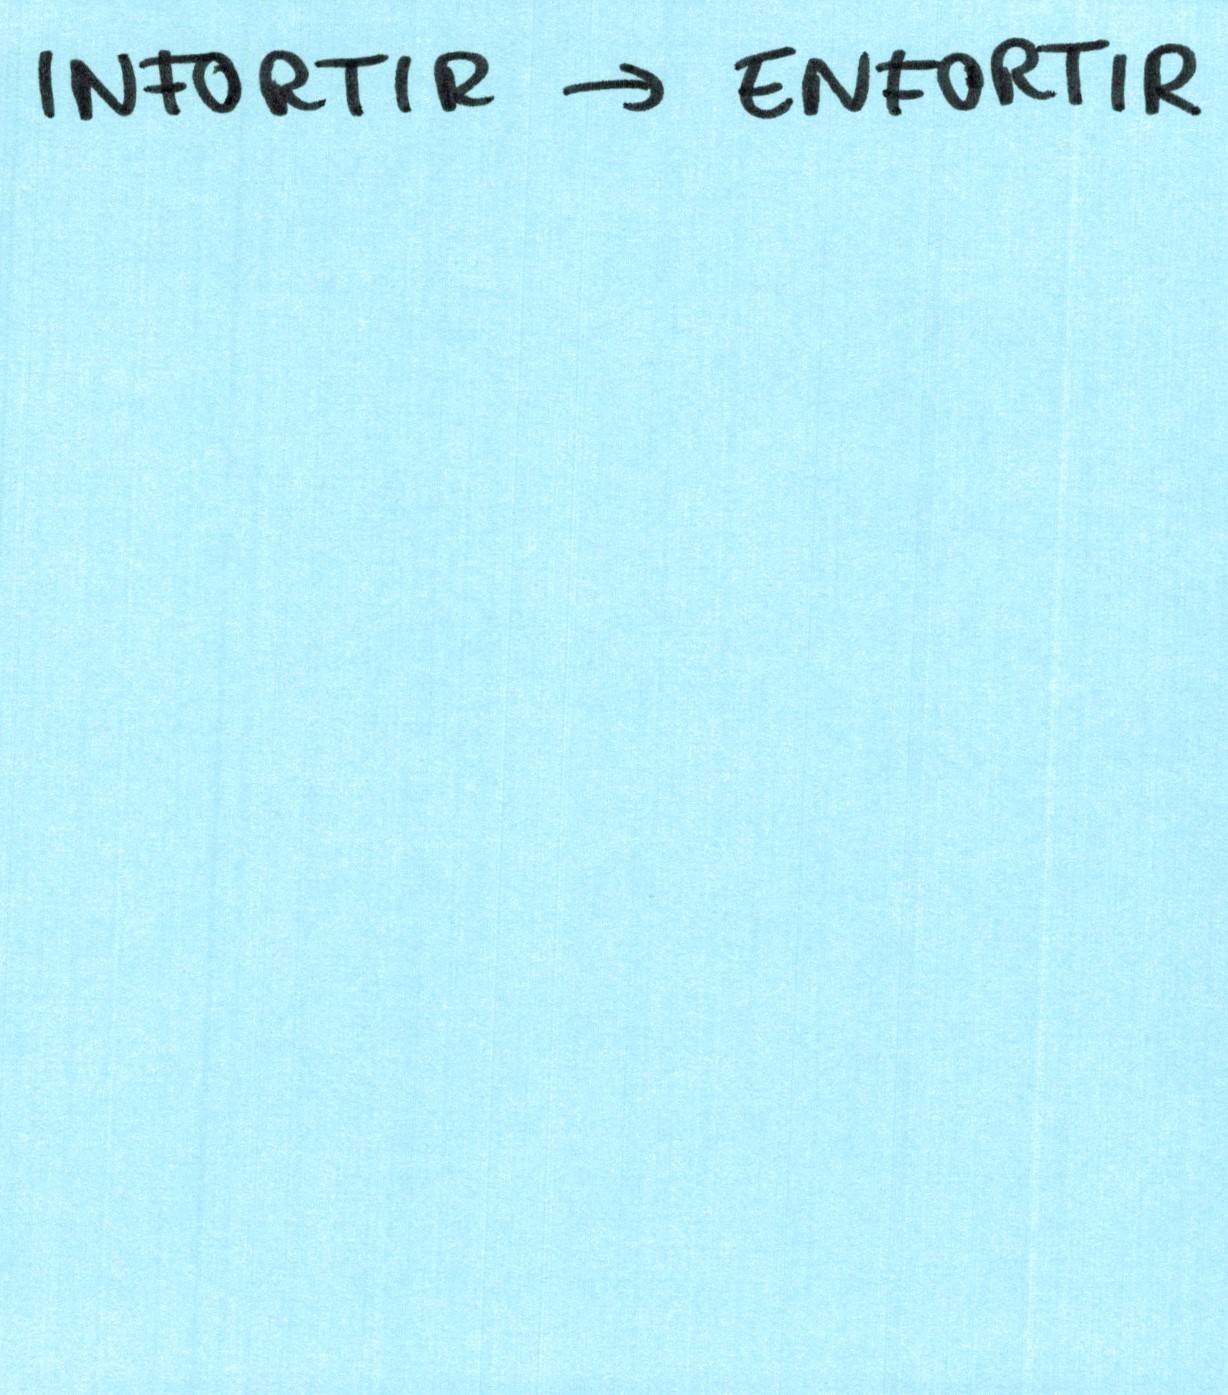 INFORTIR → ENFORTIR